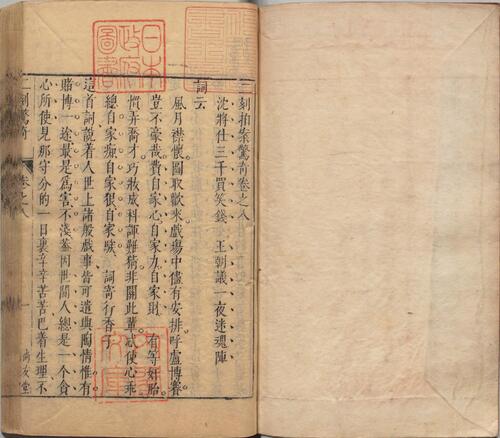 二刻拍案驚奇卷之八
沈將仕三千買笑錢　王朝議一夜迷魂陣
詞云
風月襟懷圖取歡來戲場中儘有安排呼盧博賽
豈不豪哉費自家心自家力自家財　有等奸胎
慣弄喬才巧妝成科諢難猜非關此輩忒使心乖
總自家癡自家狠自家騃　詞寄行香子
這首詞說着人世上諸般戲事皆可遣興陶情惟有
賭博一途最是爲害不淺蓋因世間人總是一個貪
心所使見那守分的一日裏辛辛苦苦巴着生理不
二刻驚奇　卷之八　一　尚友堂
日本
政府
圖書